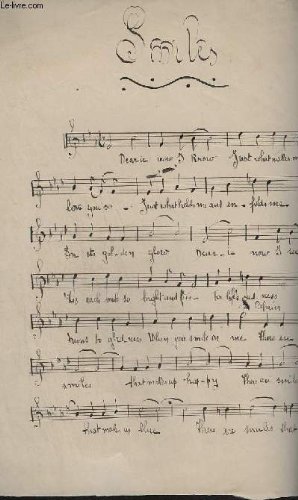 Le-livre.com
Smiles
Dearie now I know Just what makes me
love you so Just what holds me and en folds me
In its gol-den glow Dearie now I see
'Tis each smile so bright and free
turns to gladness When you smile on me There are
smiles that make us hap-py There are smiles
that make us blue There are smiles that